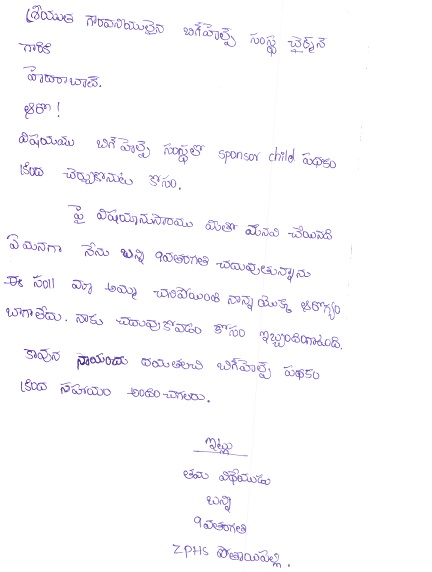 శ్రీయుత గౌరవనియులైన బిగ్‌హెల్ప్ సంస్థ చైర్మన్
గారికి
హైదరాబాద్.
ఆర్యా!
విషయము బిగ్‌హెల్ప్ సంస్థలో sponsor child పథకం
క్రింద చేర్చుకొనుట కోసం.
పై విషయానుసారము మీతో మనవి చేయునది
ఏమనగా నేను బన్ని 9వతరగతి చదువుతున్నాను
ఈ సం॥ మా అమ్మ చనిపోయింది నాన్న యొక్క ఆరోగ్యం
బాగాలేదు. నాకు చదువుకోవడం కోసం ఇబ్బందిగాఉంది.
కావున నాయందు దయతలచి బిగ్‌హెల్ప్ పథకం
క్రింద సహాయం అందించగలరు.
ఇట్లు
తమ విధేయుడు
బన్ని
9వతరగతి
ZPHS పోతాయిపల్లి.